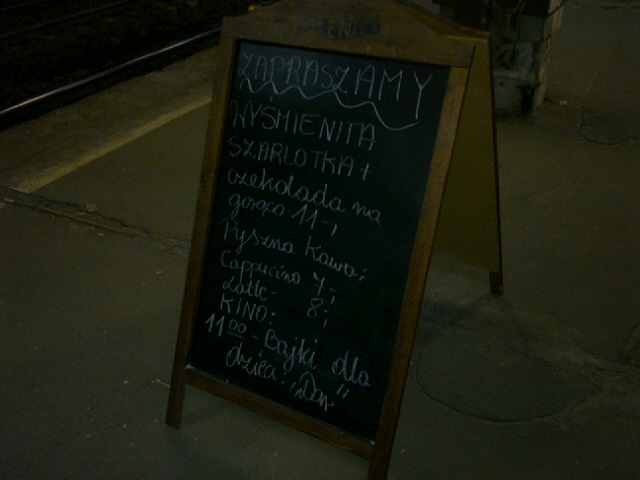 MENU
ZAPRASZAMY
WYŚMIENITA
SZARLOTKA +
czekolada na
gorąco 11-,
Pyszna kawa:
Cappucino 7-,
Latte- 8-,
KINO:
11⁰⁰ - Bajki dla
dzieci: "Dar"